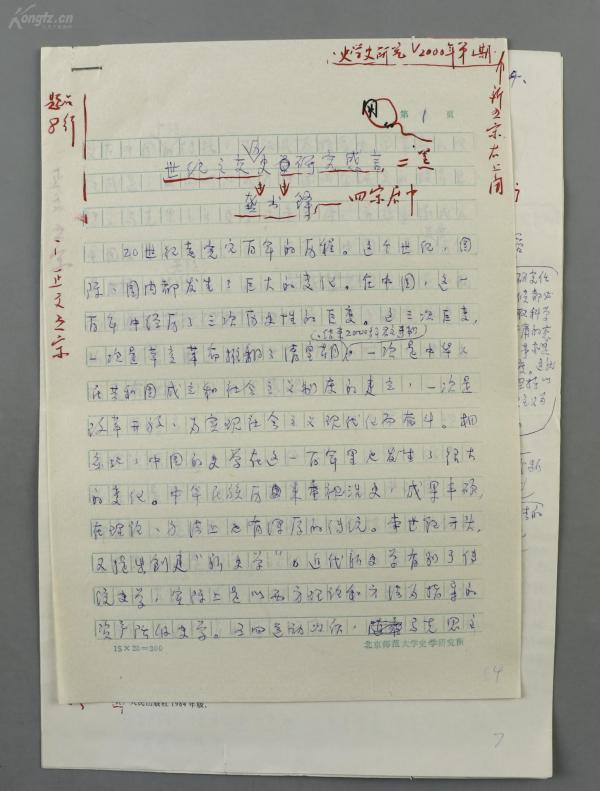 Kongtz.com
史学史研究 2000年第1期
第 1 页
题占
8行
世纪之交史学研究感言
龚书铎
四宋居中
20世纪走完它百年的历程。这个世纪,国
际、国内都发生了巨大的变化。在中国,这一
百年中经历了三次历史性的巨变。这三次巨变,
一次是辛亥革命推翻了清皇朝,一次是中华人
结束2000多年
民共和国成立和社会主义制度的建立,一次是
改革开放,为实现社会主义现代化而奋斗。相
应地,中国的史学在这一百年里也发生了很大
的变化。中华民族历来重视治史,成果丰硕,
在理论、方法上也有深厚的传统。本世纪开头,
又提出创建“新史学”。近代新史学有别于传
统史学,实际上是以西方理论和方法为指导的
资产阶级史学。五四运动以后,马克思主
15×20=300
北京师范大学史学研究所
人民出版社1984年版
7